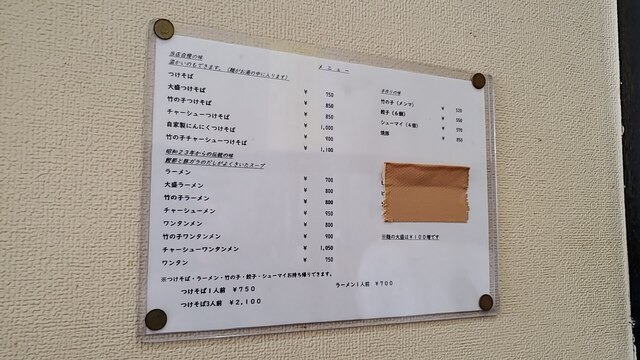 メニュー
当店自慢の味
温かいのもできます。(麺がお湯の中に入ります)
つけそば ¥ 750
大盛つけそば ¥ 850
竹の子つけそば ¥ 850
チャーシューつけそば ¥ 1,000
自家製にんにくつけそば ¥ 900
竹の子チャーシューつけそば ¥ 1,100
昭和23年からの伝統の味
鰹節と豚ガラのだしがよくきいたスープ
ラーメン ¥ 700
大盛ラーメン ¥ 800
竹の子ラーメン ¥ 800
チャーシューメン ¥ 950
ワンタンメン ¥ 800
竹の子ワンタンメン ¥ 900
チャーシューワンタンメン ¥ 1,050
ワンタン ¥ 750
手作りの味
竹の子(メンマ) ¥
餃子(6個) ¥ 550
シューマイ(4個) ¥
焼豚 ¥ 850
※麺の大盛は¥100増です
※つけそば・ラーメン・竹の子・餃子・シューマイお持ち帰りできます。
つけそば1人前 ¥750
ラーメン1人前 ¥700
つけそば3人前 ¥2,100